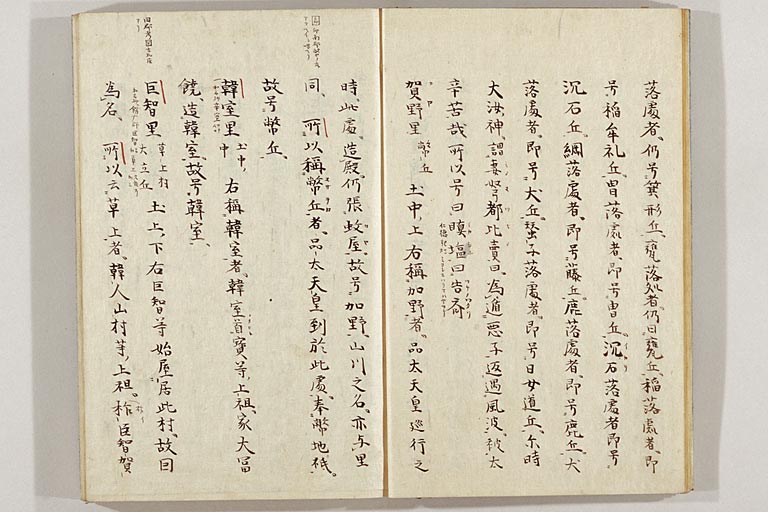 落處者、仍号箕形丘、甕落処者、仍曰甕丘、稲落處者、即
号稲牟礼丘、冑落處者、即号冑丘、沉石落處者、即号
沉石丘、綱落處者、即号藤丘、鹿落處者、即号鹿丘、犬
落處者、即号犬丘、蚕子落處者、即号日女道丘、尓時
大汝神、謂妻弩都比賣曰、為遁悪子返遇風波、被太
辛苦哉、所以号曰瞋塩、曰告斎
賀野里 幣丘 土中、上右稱加野者、品太天皇巡行之
時、此處造殿、仍張蚊屋、故号加野、山川之名、亦与里
同、所以稱幣丘者、品太天皇到於此處、奉幣地祇、
故号幣丘、
韓室里 土中中、右稱韓室者、韓室首寶等、上祖、家大冨
饒、造韓室、故号韓室、
巨智里 草上村 大立丘 土上下、右巨智等始屋居此村、故曰
為名、所以云草上者、韓人山村等、上祖、柞巨智賀